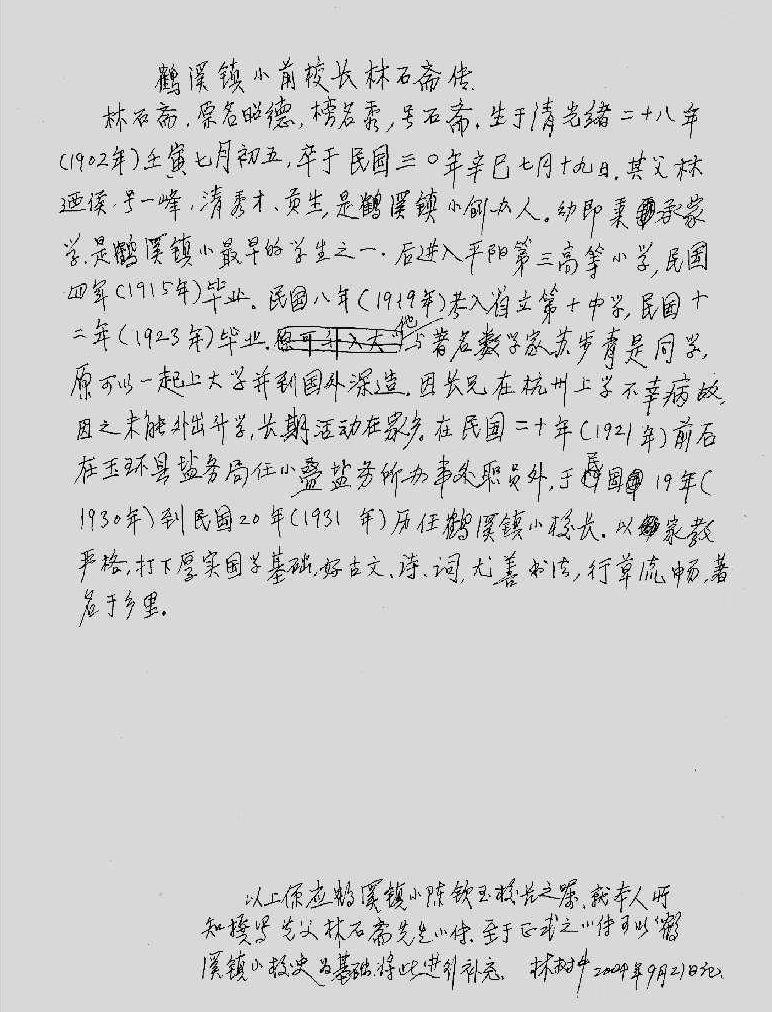 鹤溪镇小前校长林石斋传
林石斋,原名昭德,榜名秀,号石斋.生于清光绪二十八年
(1902年)壬寅七月初五,卒于民国三〇年辛巳七月十九日.其父林
迺俟,号一峰,清秀才、贡生,是鹤溪镇小创办人。幼即秉承家
学.是鹤溪镇小最早的学生之一.后进入平阳第三高等小学,民国
四年(1915年)毕业.民国八年(1919年)考入省立第十中学,民国十
二年(1923年)毕业.他与著名数学家苏步青是同学,
原可以一起上大学并到国外深造.因长兄在杭州上学不幸病故,
因之未能外出升学,长期活动在家乡.在民国二十年(1921年)前后
在玉环县盐务局任小叠盐务所办事处职员外,于民国19年(
1930年)到民国20年(1931年)历任鹤溪镇小校长.以家教
严格,打下厚实国学基础.好古文、诗、词,尤善书法,行草流畅,著
名于乡里。
以上系应鹤溪镇小陈钦玉校长之嘱,就本人所
知撰写先父林石斋先生小传.至于正式之小传可以《鹤
溪镇小校史》为基础.将此进行补充. 林树中2004年9月21日记.